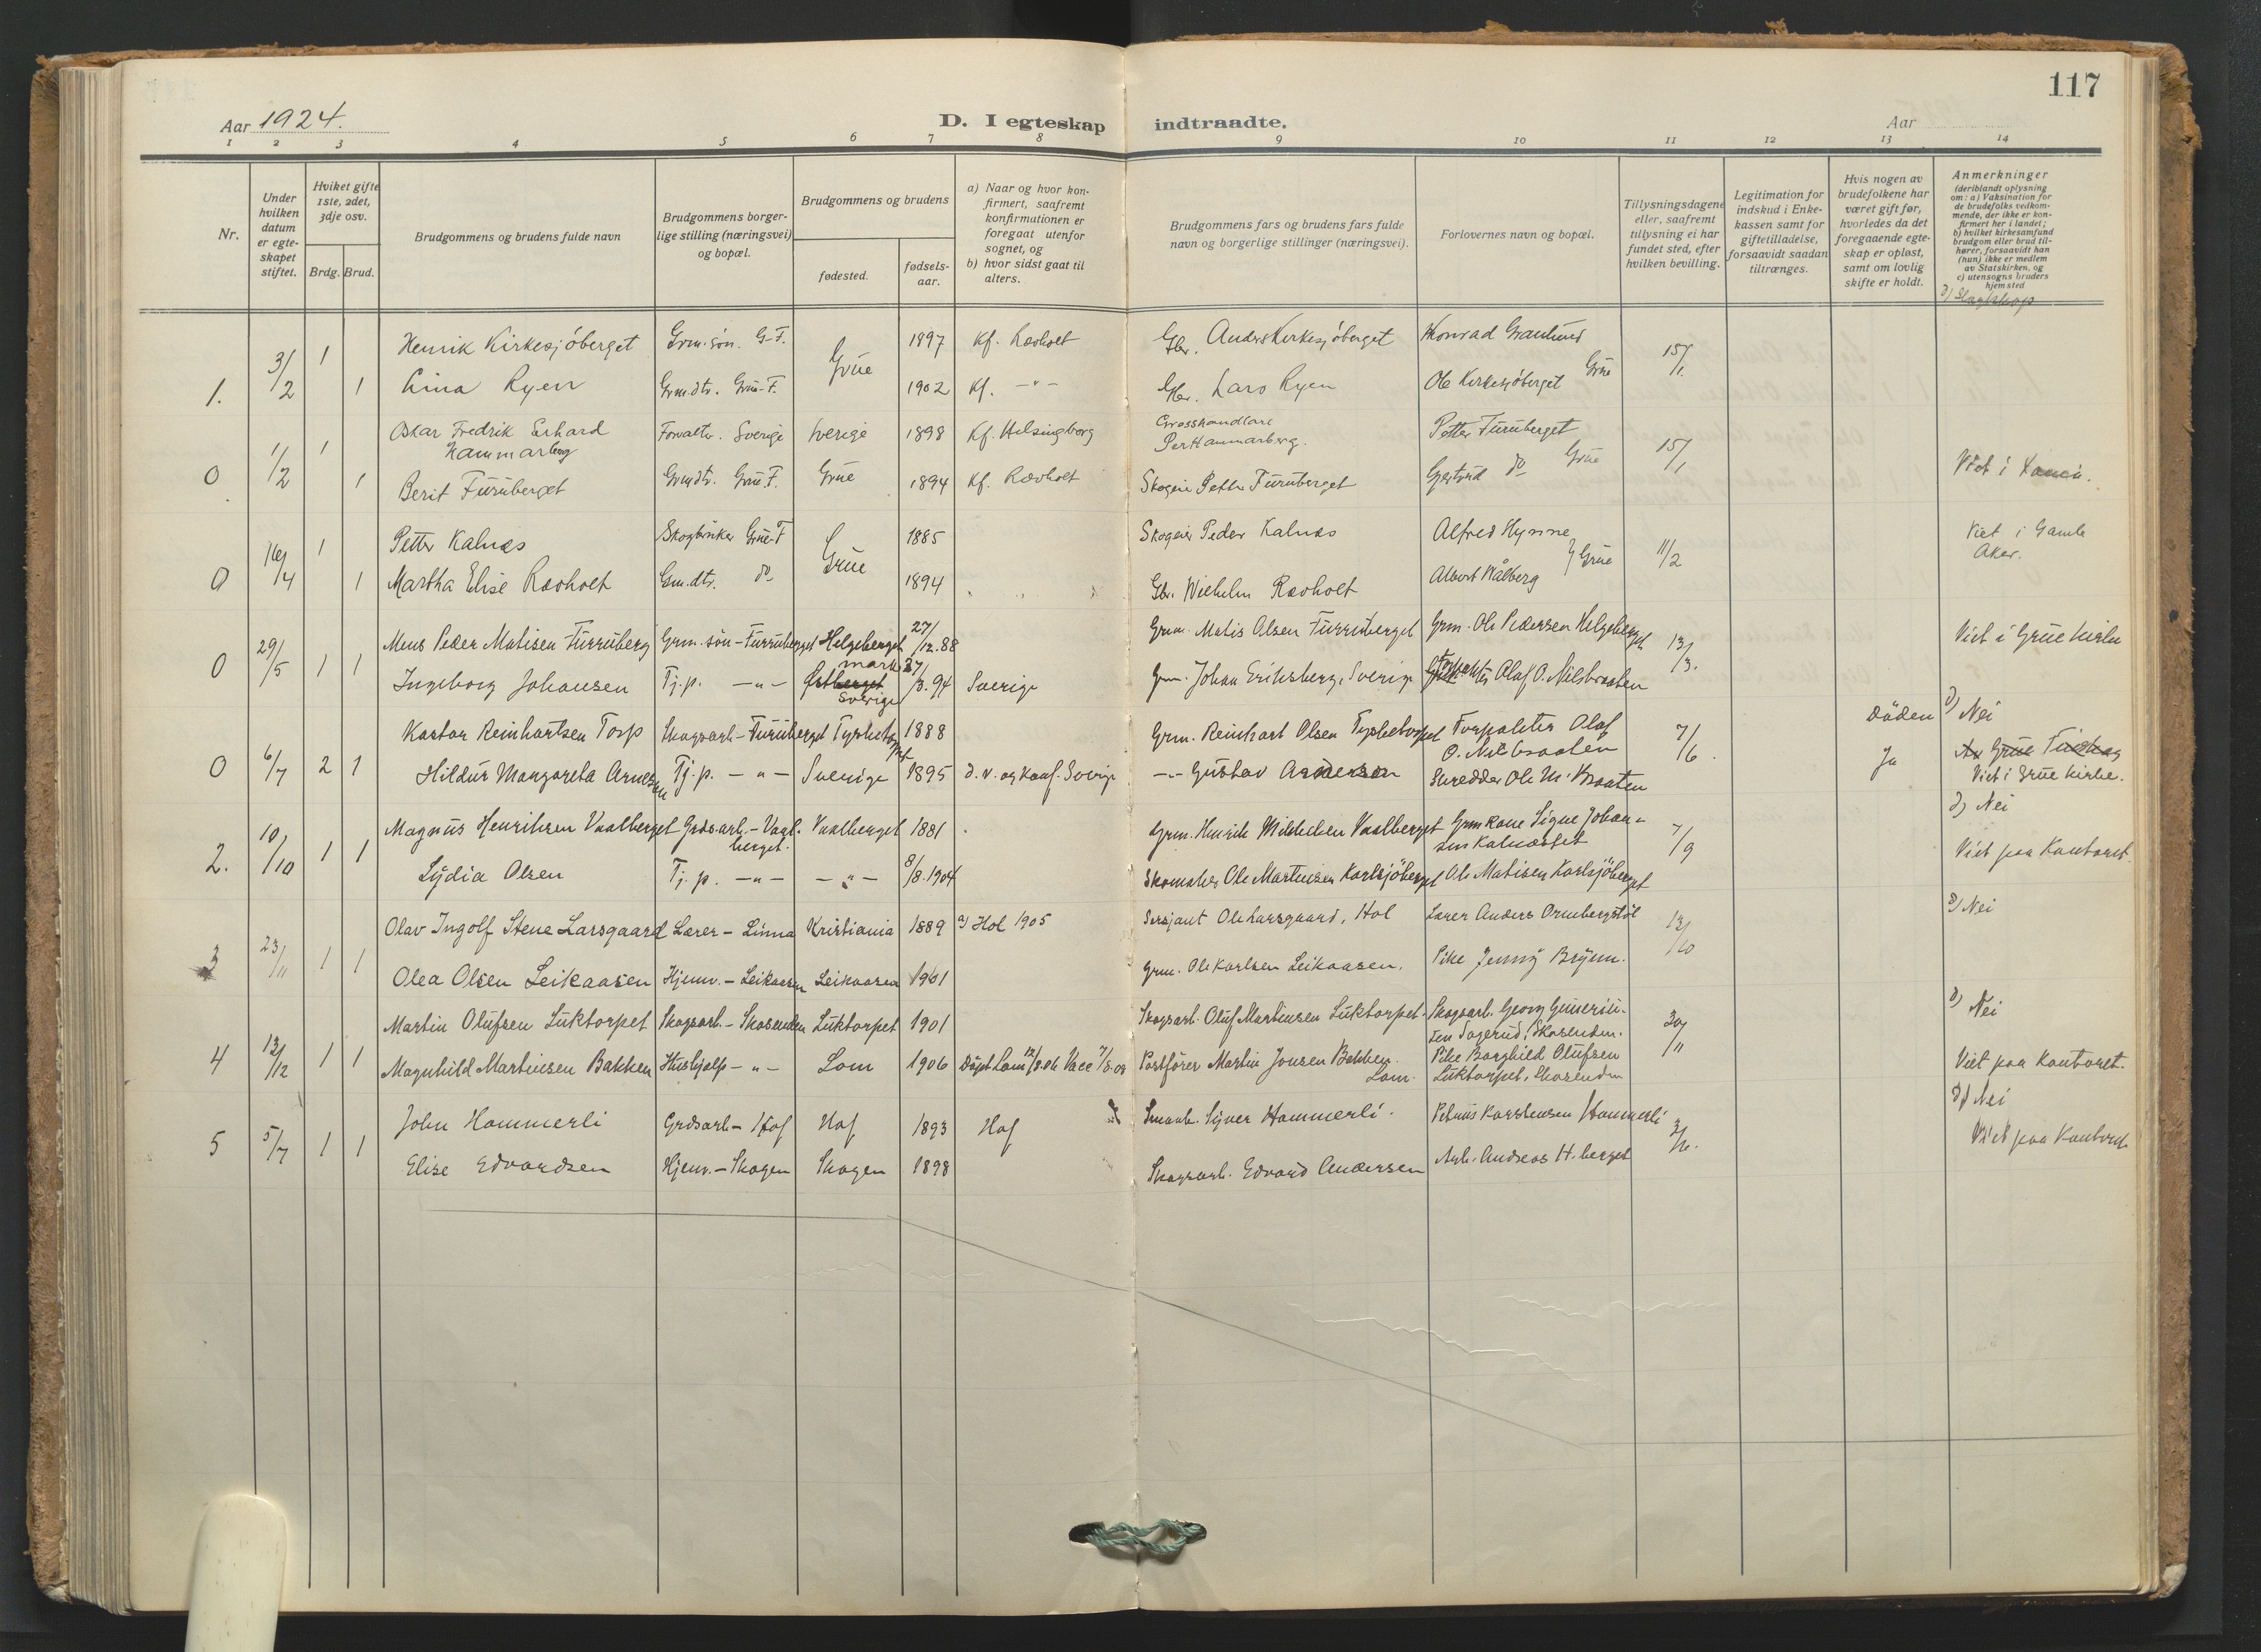 117
Aar 1924.
D. I egteskap indtraadte.
Aar
1 2 3 4 5 6 7 8 9 10 11 12 13 14
Nr.
Under
hvilken
datum
er egte-
skapet
stiftet.
Hviket gifte
1ste, 2det,
3dje osv.
Brdg. Brud.
Brudgommens og brudens fulde navn
Brudgommens borger-
lige stilling (næringsvei)
og bopæl.
Brudgommens og brudens
fødested.
fødsels-
aar.
a) Naar og hvor kon-
firmert, saafremt
konfirmationen er
foregaat utenfor
sognet, og
b) hvor sidst gaat til
alters.
Brudgommens fars og brudens fars fulde
navn og borgerlige stillinger (næringsvei).
Forlovernes navn og bopæl.
Tillysningsdagene
eller, saafremt
tillysning ei har
fundet sted, efter
hvilken bevilling.
Legitimation for
indskud i Enke-
kassen samt for
giftetilladelse,
forsaavidt saadan
tiltrænges.
Hvis nogen av
brudefolkene har
været gift før,
hvorledes da det
foregaaende egte-
skap er opløst,
samt om lovlig
skifte er holdt.
Anmerkninger
(deriblandt oplysning
om: a) Vaksination for
de brudefolks vedkom-
mende, der ikke er kon-
firmert her i landet;
b) hvilket kirkesamfund
brudgom eller brud til-
hører, forsaavidt han
(hun) ikke er medlem
av Statskirken, og
c) utensogns bruders
hjemsted
d) Slagtskap
1. 3/2 1 Henrik Kirkesjöberget Grm.sön. G-F. Grue 1897 Kf. Rævholt Gbr. Anders Kirkesjöberget Konrad Granlund 15/1.
1 Lina Ryen Grm.dtr. Grue-F. 1902 Kf. -"- Gbr. Lars Ryen Ole Kirkesjöberget Grue
0 1/2 1 Oskar Fredrik Erhard
Hammarberg Forvaltr. Sverige Sverige 1898 Kf. Helsingborg Grosshandlare
Per Hammarberg. Petter Furuberget 15/1
1 Berit Furuberget Grmdtr. Grue-F. Grue 1894 Kf. Rævholt Skogeier Petter Furuberget Gjertrud do Grue Viet i
0 16/4 1 Petter Kalnæs Skogbruker Grue-F Grue 1885 Skogeier Peder Kalnæs Alfred Hynne Grue 11/2 Viet i Gamle
Aker.
1 Martha Elise Rævholt Grm.dtr. do 1894 Gbr. Wilhelm Rævholt Albert Wålberg
0 29/5 1 1 Mens Peder Matisen Furruberg Grm. sön - Furruberget Helgeberget 27/12.88 Grm. Matis Olsen Furruberget Grm. Ole Pedersen Helgeberget 13/3. Viet i Grue kirke
Ingeborg Johansen Tj.p. -"- Östmark
Sverige 27/3.94 Sverige Grm. Johan Eriksberg, Sverige Olaf O. Nilsbraaten
0 6/7 2 1 Kastor Reinhartsen Torp Skogsarb - Furuberget Tysketorpet 1888 Grm. Reinhart Olsen Tysketorpet Torpaleter Olaf
O. Nilsbraaten 7/6. Döden d) Nei
Hildur Margareta Arnesen Tj.p. -"- Sverige 1895 D.v. og konf. Sverige -"- Gustav Andersen Skredder Ole M. Braaten Ja Viet i Grue kirke.
2. 10/10 1 1 Magnus Henriksen Vaalberget Grdsarb. - Vaal-
berget. Vaalberget 1881 Grm. Henrik Mikkelsen Vaalberget Grmkone Signe Johan-
sen Kalnæsset 7/9 d) Nei
Lydia Olsen Tj.p. -"- -"- 8/8.1904 Skomaker Ole Martinsen Karlsjöberget Ole Matisen Karlsjöberget Viet paa Kontoret.
3 23/11 1 1 Olav Ingolf Stene Larsgaard Lærer - Linna Kristiania 1889 a) Hol 1905 Sersjant Ole Larsgaard, Hol Lærer Anders Ornbergstöl 12/10 d) Nei
Olea Olsen Leikaasen Hjemv. - Leikaasen Leikaasen 1901 Grm. Ole Karlsen Leikaasen. Pike Jenny Brynn.
4 13/12 1 1 Martin Olufsen Luktorpet Skogsarb. - Skasenden Luktorpet 1901 Skogsarb. Oluf Martinsen Luktorpet. Skogsarb. Georg Guneriu-
sen Sagerud, Skasenden. 30/11 d) Nei
Magnhild Martinsen Bakken Hushjælp - " - Lom 1906 Döpt Lom 12/8.06 Vacc 7/8.08 Postförer Martin Jonsen Bakken.
Lom. Pike Borghild Olufsen
Luktorpet, Skasenden Viet paa Kontoret.
5 5/7 1 1 John Hammerli Grdsarb - Hof Hof 1893 Hof Smaabr. Syver Hammerli. Petrus Karstensen Hammerli d) Nei
Elise Edvardsen Hjemv. - Skogen Skogen 1898 Skogsarb. Edvard Andersen Arb. Andreas H.berget Viet paa Kontoret.